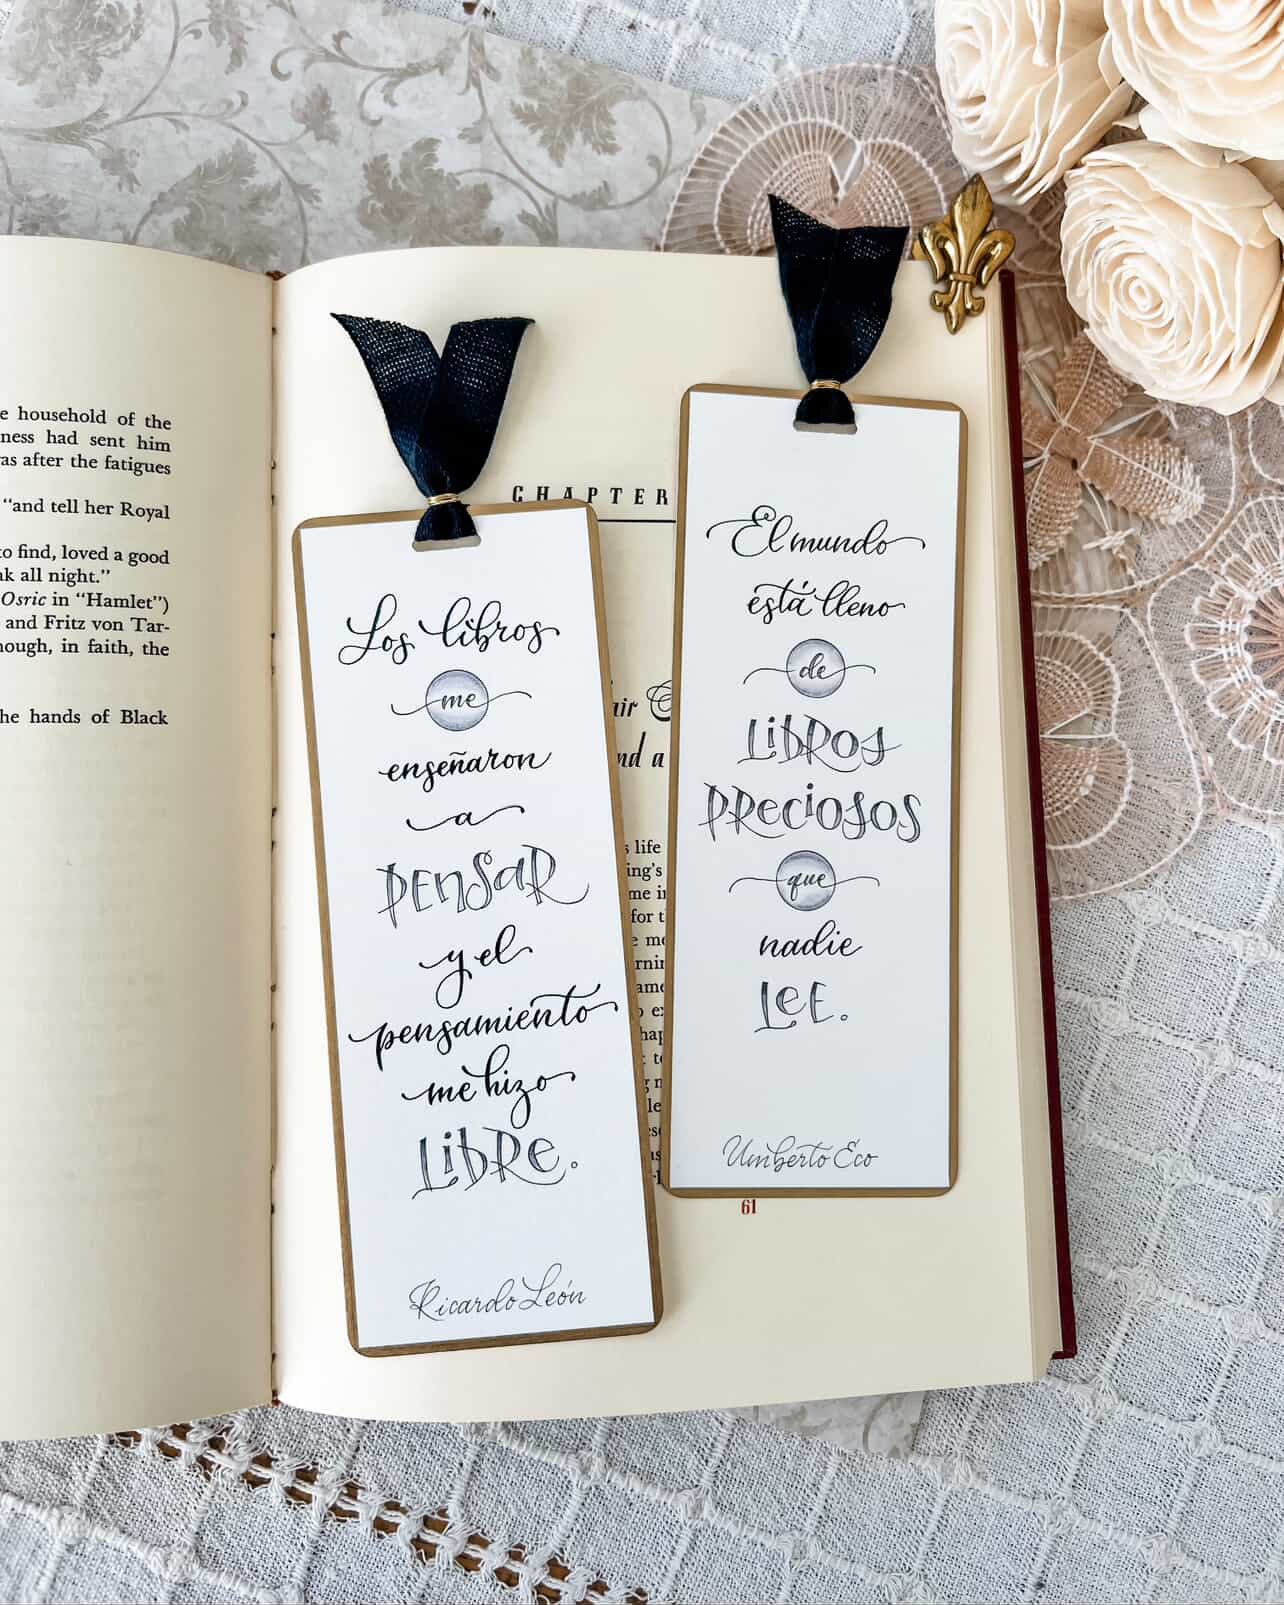 household of the
ness had sent him
as after the fatigues
“and tell her Royal
to find, loved a good
ak all night.”
Osric in “Hamlet”)
and Fritz von Tar-
hough, in faith, the
he hands of Black
CHAPTER
life
ing's
me in
for
61
Los libros
me
enseñaron
a
PENSAR
y el
pensamiento
me hizo
LIBRE.
Ricardo León
El mundo
está lleno
de
LIBROS
PRECIOSOS
que
nadie
LEE.
Umberto Eco